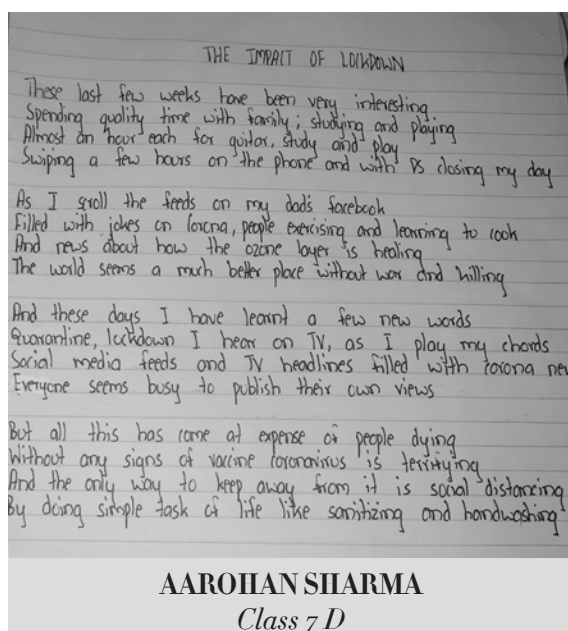 THE IMPACT OF LOCKDOWN
These last few weeks have been very interesting
Spending quality time with family; studying and playing
Almost an hour each for guitar, study and play
Swiping a few hours on the phone and with PS closing my day
As I scroll the feeds on my dad's facebook
Filled with jokes on corona, people exercising and learning to cook
And news about how the ozone layer is healing
The world seems a much better place without war and killing
And these days I have learnt a few new words
Quarantine, lockdown I hear on TV, as I play my chords
Social media feeds and TV headlines filled with corona new
Everyone seems busy to publish their own views
But all this has come at expense of people dying
Without any signs of vaccine coronavirus is terrifying
And the only way to keep away from it is social distancing
By doing simple task of life like sanitizing and handwashing
AAROHAN SHARMA
Class 7 D